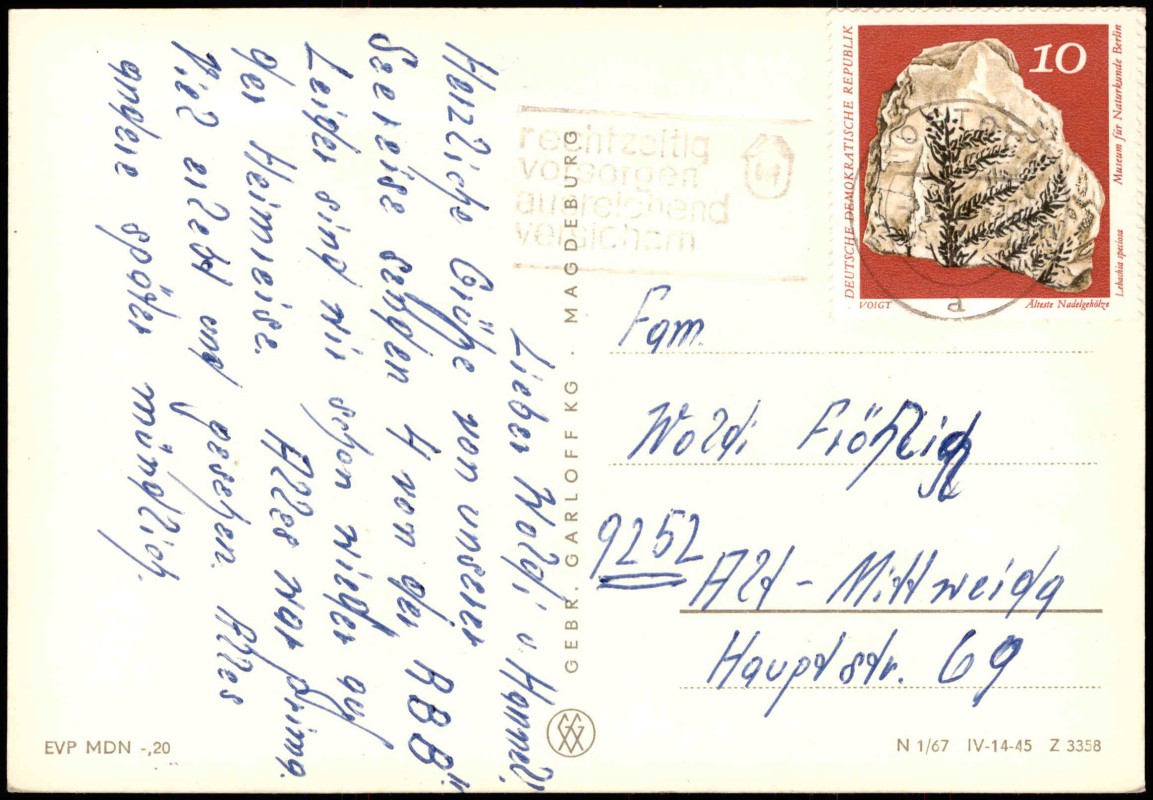 Lieber Woldi u. Hannel!
Herzliche Grüße von unserer
Seereise senden 4 von der RBB"
Leider sind wir schon wieder auf
der Heimreise. Alles war prima.
Viel erlebt und gesehen. Alles
andere später mündlich.
GEBR. GARLOFF KG · MAGDEBURG
rechtzeitig
vorsorgen
ausreichend
versichern
DEUTSCHE DEMOKRATISCHE REPUBLIK
10
Museum für Naturkunde Berlin
Lebachia speciosa
VOIGT
Älteste Nadelgehölze
Fam.
Woldi Fröhlich
9252
Alt - Mittweida
Hauptstr. 69
EVP MDN -,20
N 1/67 IV-14-45 Z 3358